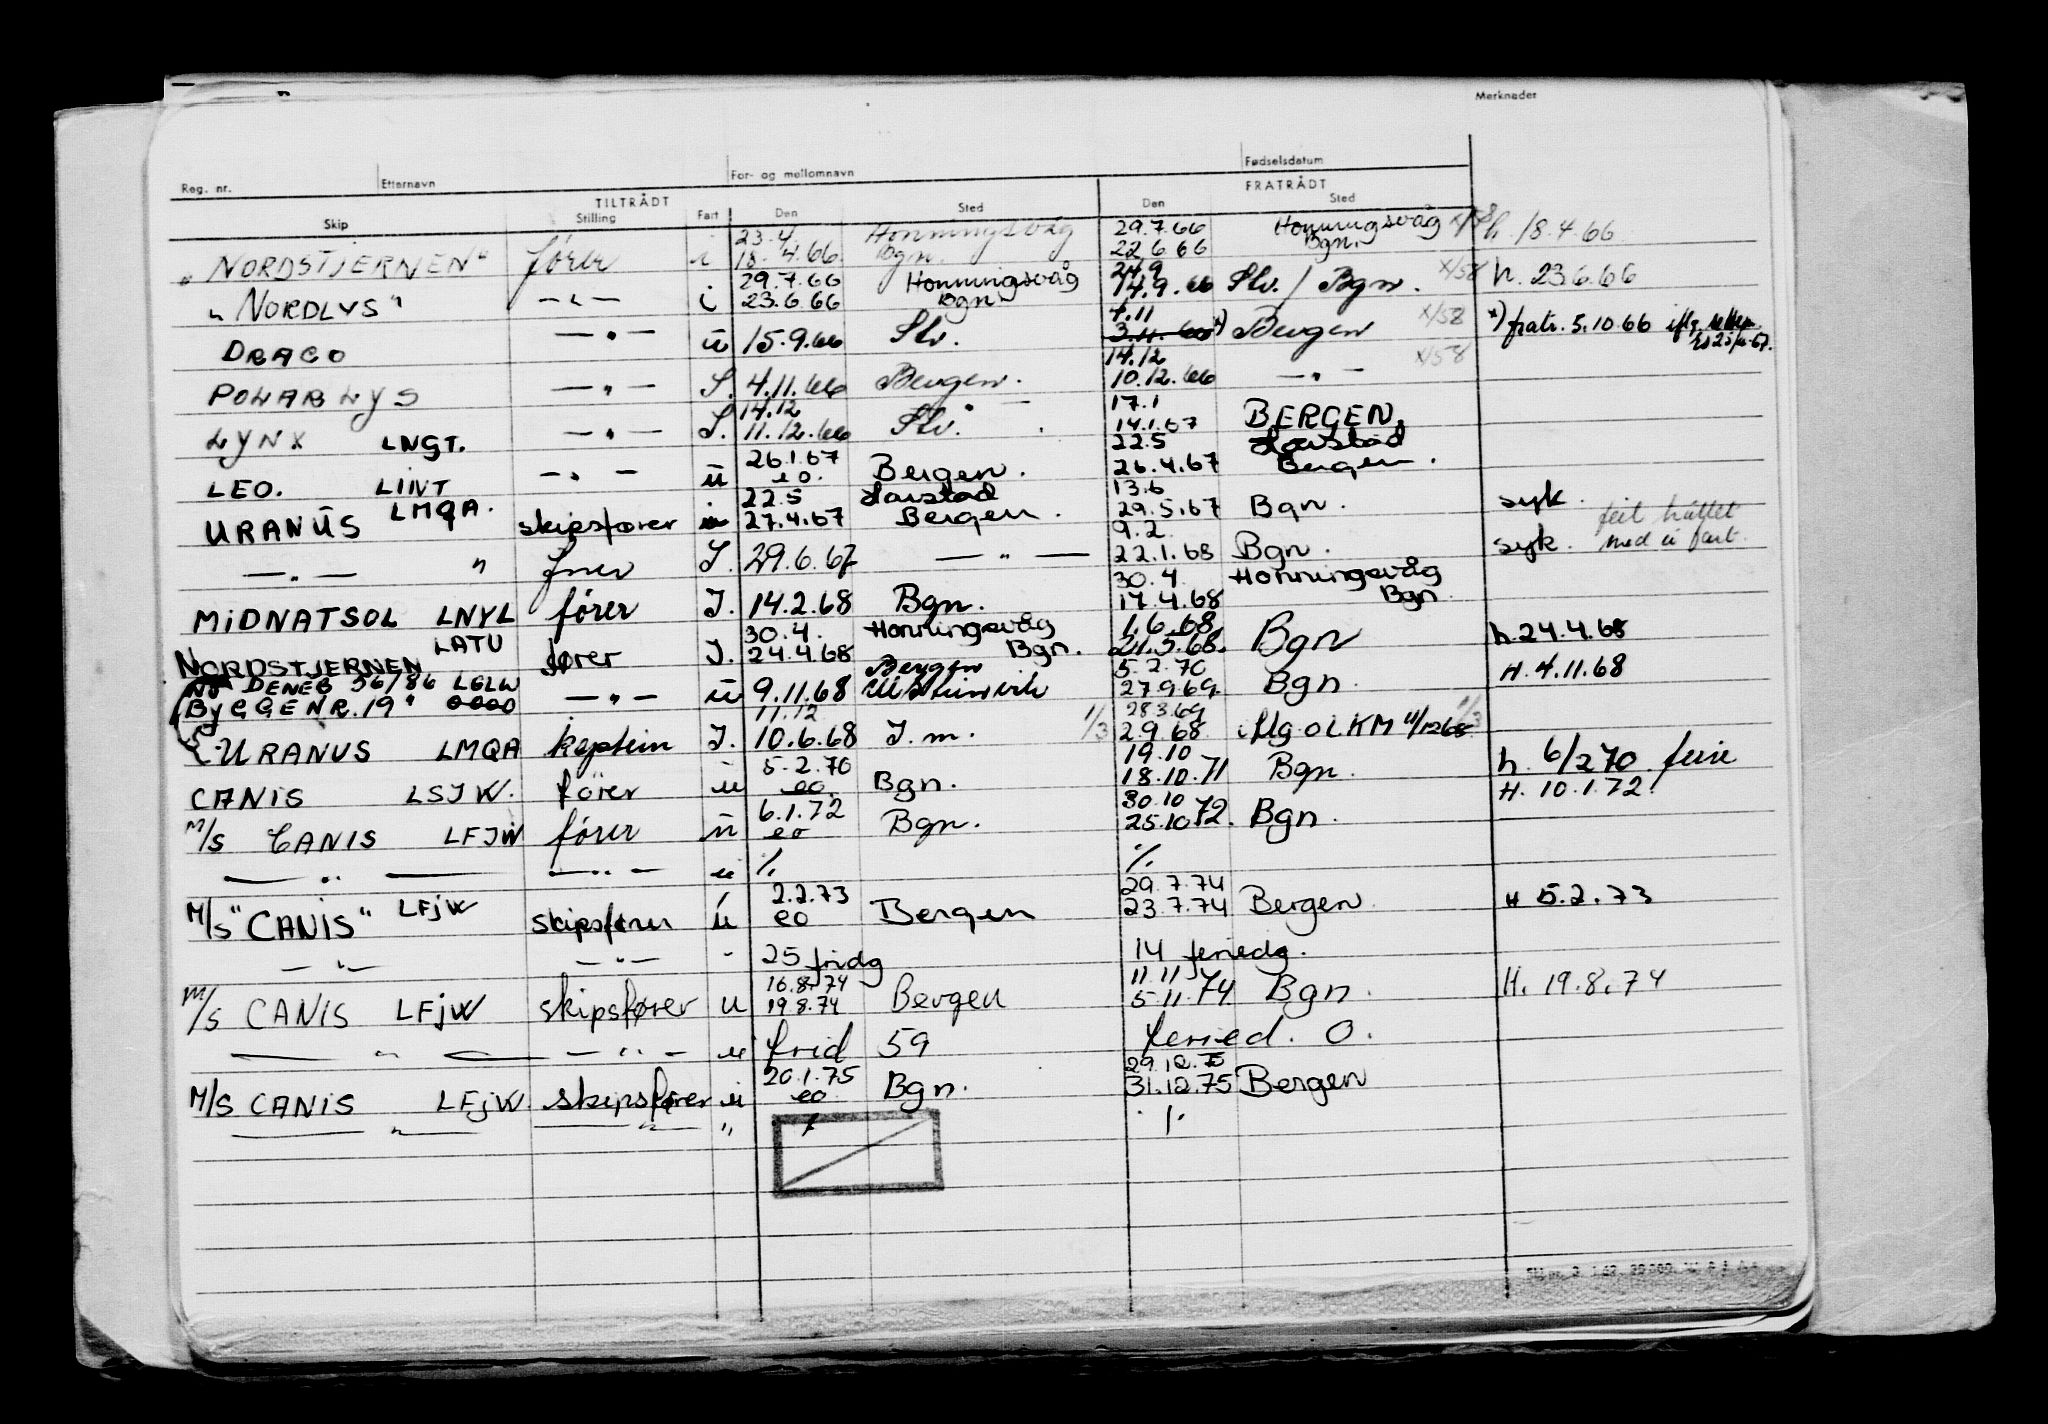 Merknader
Reg. nr. Etternavn For- og mellomnavn Fødselsdatum
TILTRÅDT FRATRÅDT
Skip Stilling Fart Den Sted Den Sted
23.4 Honningsvåg 29.7.66 Honningsvåg x/58
"NORDSTJERNEN" fører i 18.4.66 Bgn. 22.6.66 Bgn. h. 18.4.66
29.7.66 Honningsvåg 24.9
"NORDLYS" —"— i 23.6.66 Bgn. 14.9.66 Slv. / Bgn. x/58 h. 23.6.66
4.11
DRACO —"— u 15.9.66 Slv. 3.11.66 x) Bergen x/58 x) fratr. 5.10.66
14.12
POLARLYS —"— I. 4.11.66 Bergen. 10.12.66 —"— x/58
14.12 17.1
LYNX LNGT. —"— I. 11.12.66 Slv. 14.1.67 BERGEN.
26.1.67 22.5 Harstad
LEO. LINT —"— u eo. Bergen. 26.4.67 Bergen.
22.5 Harstad 13.6
URANUS LMQA. skipsfører 27.4.67 Bergen. 29.5.67 Bgn. syk.
9.2. feil påført
—"— " fører I. 29.6.67 —"— 22.1.68 Bgn. syk. med u fart.
30.4. Honningsvåg
MIDNATSOL LNYL fører I. 14.2.68 Bgn. 17.4.68 Bgn
30.4. Honningsvåg 1.6.68
NORDSTJERNEN LATU fører I. 24.4.68 Bgn. 21.5.68. Bgn h. 24.4.68
DENEB 56/86 LGLW Bergen 5.2.70
BYGGENR. 19" —"— u 9.11.68 27.9.69 Bgn. H. 4.11.68
11.12 28.3.69
URANUS LMQA kaptein I. 10.6.68 I.m. 1/3 2.9.68 iflg OLKM 11/12 68 1/3
5.2.70 19.10
CANIS LSJW. fører u eo. Bgn. 18.10.71 Bgn. h. 6/2 70 ferie
6.1.72 30.10 H. 10.1.72.
M/S CANIS LFJW fører u eo Bgn. 25.10 72. Bgn.
—"— —"— u ./. ./.
2.2.73 29.7.74
M/S "CANIS" LFJW skipsfører u eo Bergen 23.7.74 Bergen. H 5.2.73
—"— —"— - 25 fridg 14 feriedg.
16.8.74 11.11
M/S CANIS LFJW skipsfører u 19.8.74 Bergen 5.11.74 Bgn. H. 19.8.74
—"— —"— u frid 59 feried. 0.
20.1.75 29.12.75
M/S CANIS LFJW. skipsfører u eo Bgn. 31.12.75 Bergen
—"— —"— " ./. ./.